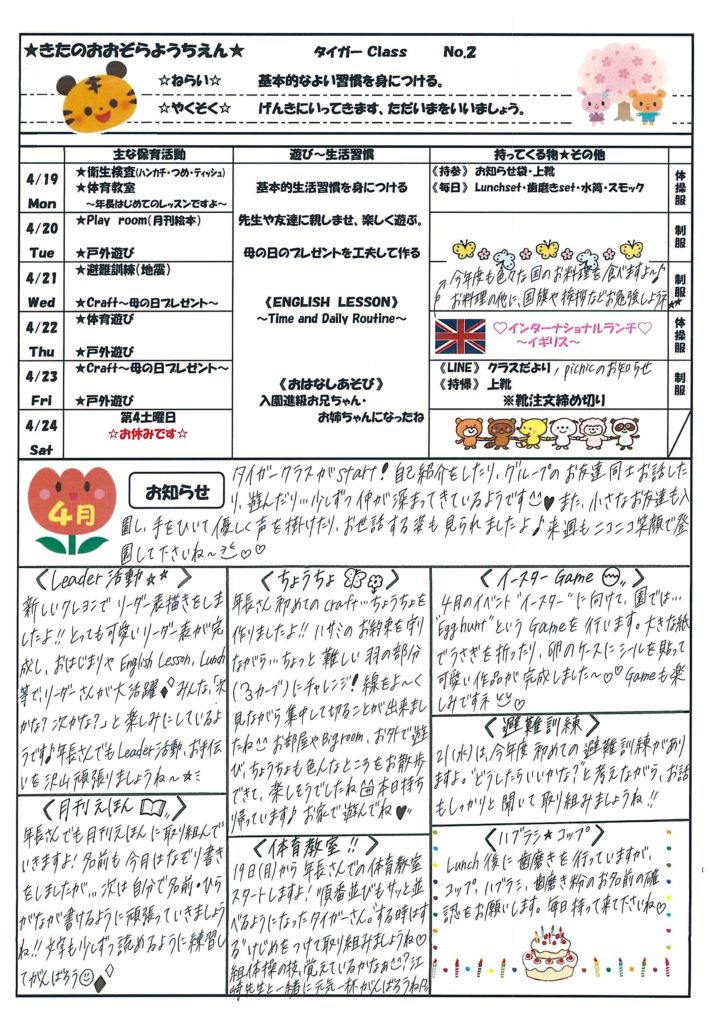 ★きたのおおぞらようちえん★ タイガー Class No.2
☆ねらい☆ 基本的なよい習慣を身につける。
☆やくそく☆ げんきにいってきます、ただいまをいいましょう。
主な保育活動 遊び～生活習慣 持ってくる物★その他
4/19 Mon
★衛生検査(ハンカチ・つめ・ティッシュ)
★体育教室
～年長はじめてのレッスンですよ～
基本的生活習慣を身につける
《持参》 お知らせ袋・上靴
《毎日》 Lunchset・歯磨きset・水筒・スモック
体操服
4/20 Tue
★Play room(月刊絵本)
★戸外遊び
先生や友達に親しませ、楽しく遊ぶ。
母の日のプレゼントを工夫して作る
制服
4/21 Wed
★避難訓練(地震)
★Craft～母の日プレゼント～
《ENGLISH LESSON》
～Time and Daily Routine～
今年度も色々な国のお料理を食べますよ～♪
お料理の他に、国旗や挨拶などお勉強しようネ★★
制服
4/22 Thu
★体育遊び
★戸外遊び
♡インターナショナルランチ♡
～イギリス～
体操服
4/23 Fri
★Craft～母の日プレゼント～
★戸外遊び
《おはなしあそび》
入園進級お兄ちゃん・
お姉ちゃんになったね
《LINE》 クラスだより, picnicのお知らせ
《持帰》 上靴
※靴注文締め切り
制服
4/24 Sat
第4土曜日
☆お休みです☆
4月
お知らせ
タイガークラスがstart! 自己紹介をしたり、グループのお友達同士お話した
り、遊んだり…少しずつ仲が深まってきているようです♥また、小さなお友達も入
園し、手をひいて優しく声を掛けたり、お世話する姿も見られましたよ♪来週もニコニコ笑顔で登
園して下さいね～♡♡
〈Leader活動★★〉
新しいクレヨンでリーダー表描きをしま
したよ!!とっても可愛いリーダー表が完
成し、おはじまりやEnglish Lesson, Lunch
等で、リーダーさんが大活躍◆みんな、「次
かな？次かな？」と楽しみにしているよ
うです♪年長さんでもLeader活動、お手伝
いを沢山頑張りましょうね～☆
〈月刊えほん〉
年長さんでも月刊えほんに取り組んで
いきますよ!名前も今月はなぞり書き
をしましたが…次は自分で名前・ひら
がなが書けるように頑張っていきましょう
ね!!文字も少しずつ読めるように練習し
てがんばろう
〈ちょうちょ〉
年長さん初めてのcraft…ちょうちょを
作りましたよ!!ハサミのお約束を守り
ながら…ちょっと難しい羽の部分
(3カーブ)にチャレンジ!線をよ～く
見ながら集中して切ることが出来まし
たね お部屋やBig room、お外で遊
び、ちょうちょも色んなところをお散歩
できて、楽しそうでしたね 本日持ち
帰っています♪お家で遊んでね♥
〈体育教室!!〉
19日(月)から年長さんでの体育教室
スタートしますよ!"順番並びもサッと並
べるようになったタイガーさん。"する時はす
る"けじめをつけて取り組みましょうね♡
組体操の技、覚えているかなぁ?江
崎先生と一緒に元気一杯がんばろうね
〈イースターGame〉
4月のイベント"イースター"に向けて、園では…
"Egg hunt"というGameを行います。大きな紙
でうさぎを折ったり、卵のケースにシールを貼って
可愛い作品が完成しました～♡♡Gameも楽
しみですネ
〈避難訓練〉
21(水)は、今年度初めての避難訓練があり
ますよ。"どうしたらいいかな?"と考えながら、お話
もしっかりと聞いて取り組みましょうね!!
〈ハブラシ★コップ〉
Lunch後に歯磨きを行っていますが、
コップ、ハブラシ、歯磨き粉のお名前の確
認をお願いします。毎日持って来て下さいね♡